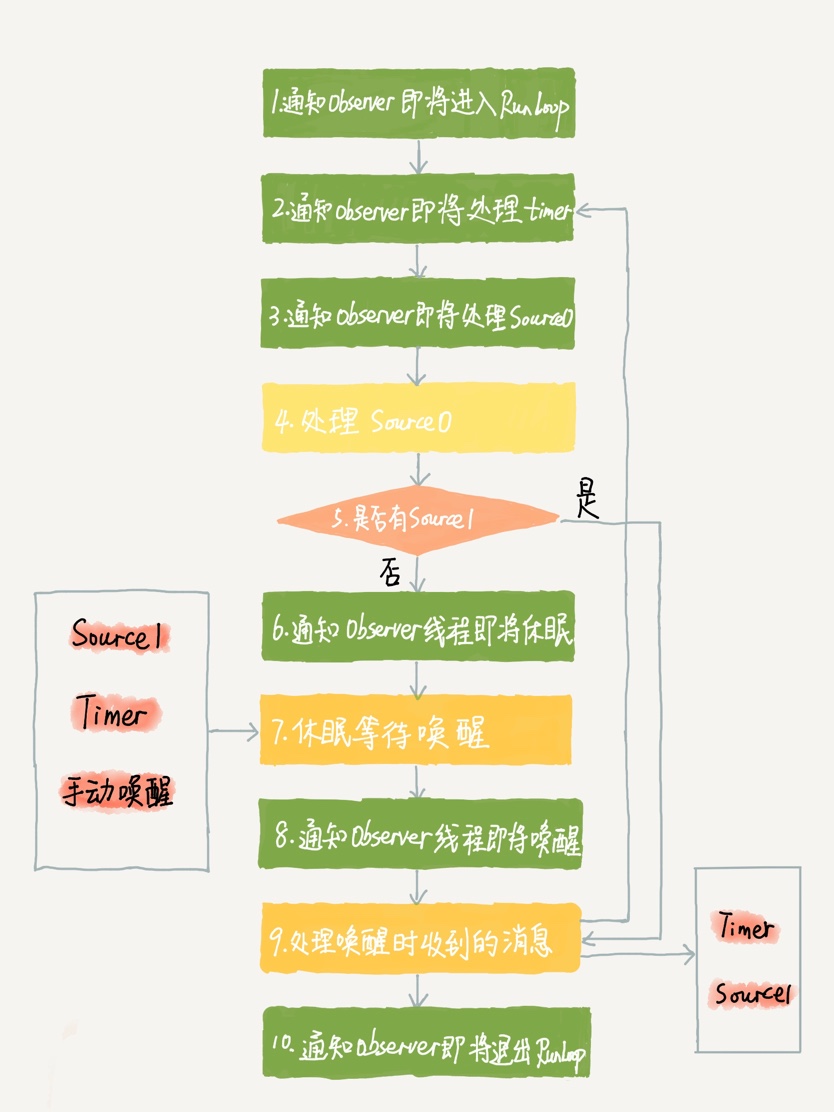 1.通知Observer 即将进入RunLoop
2.通知Observer即将处理timer
3.通知Observer即将处理Source0
4.处理 Source0
5.是否有Source1
是
否
6.通知 Observer线程即将休眠
Source1
Timer
手动唤醒
7.休眠等待唤醒
8.通知Observer线程即将唤醒
9.处理唤醒时收到的消息
Timer
Source1
10.通知Observer即将退出RunLoop